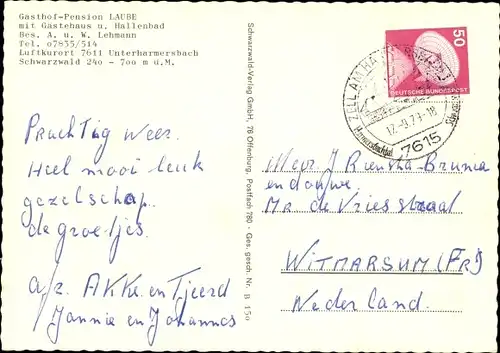 Gasthof-Pension LAUBE
mit Gästehaus u. Hallenbad
Bes. A. u. W. Lehmann
Tel. 07835/514
Luftkurort 7611 Unterharmersbach
Schwarzwald 240 - 700 m ü.M.
Prachtig weer.
Heel mooi leuk
gezelschap.
de groetjes.
afz. Akke en Tjeerd
Jannie en Johannes
Schwarzwald-Verlag GmbH, 76 Offenburg, Postfach 780 - Ges. gesch. Nr. B 150
50
DEUTSCHE BUNDESPOST
ZELL AM HARMERSBACH
7615
Meer J Riensha-Bruinsma
en
Mr de Vries straat
WITMARSUM (Fr)
Nederland.